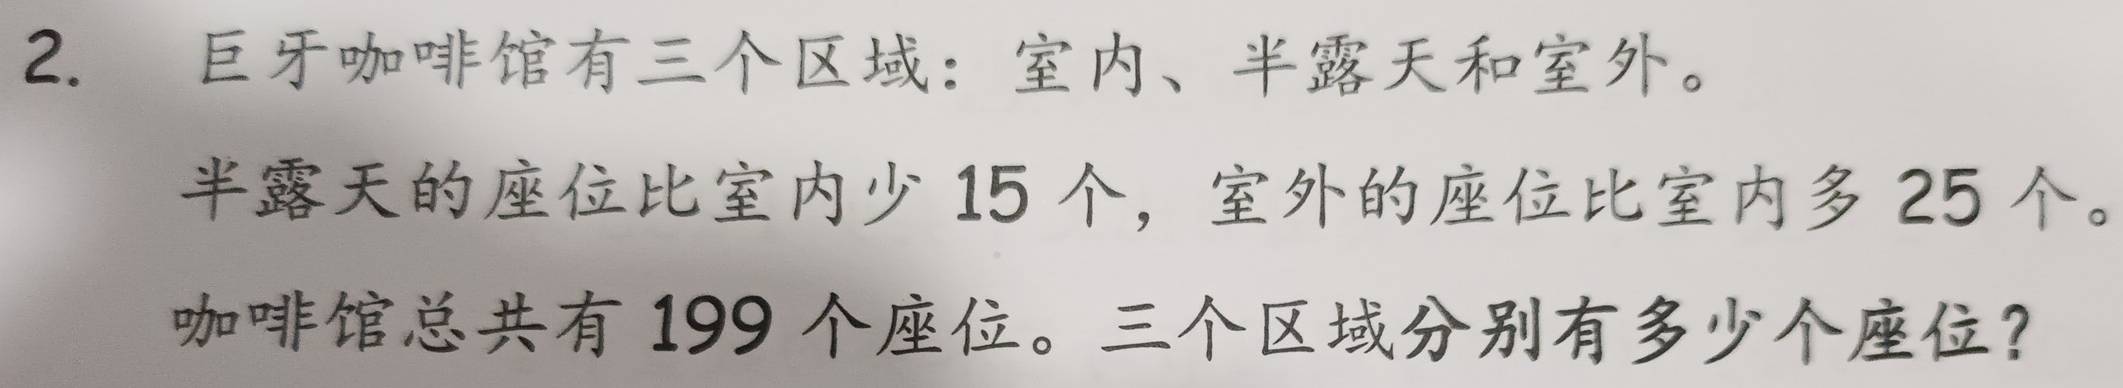 2. 巨牙咖啡馆有三个区域：室内、半露天和室外。
半露天的座位比室内少 15 个，室外的座位比室内多 25 个。
咖啡馆总共有 199 个座位。三个区域分别有多少个座位？